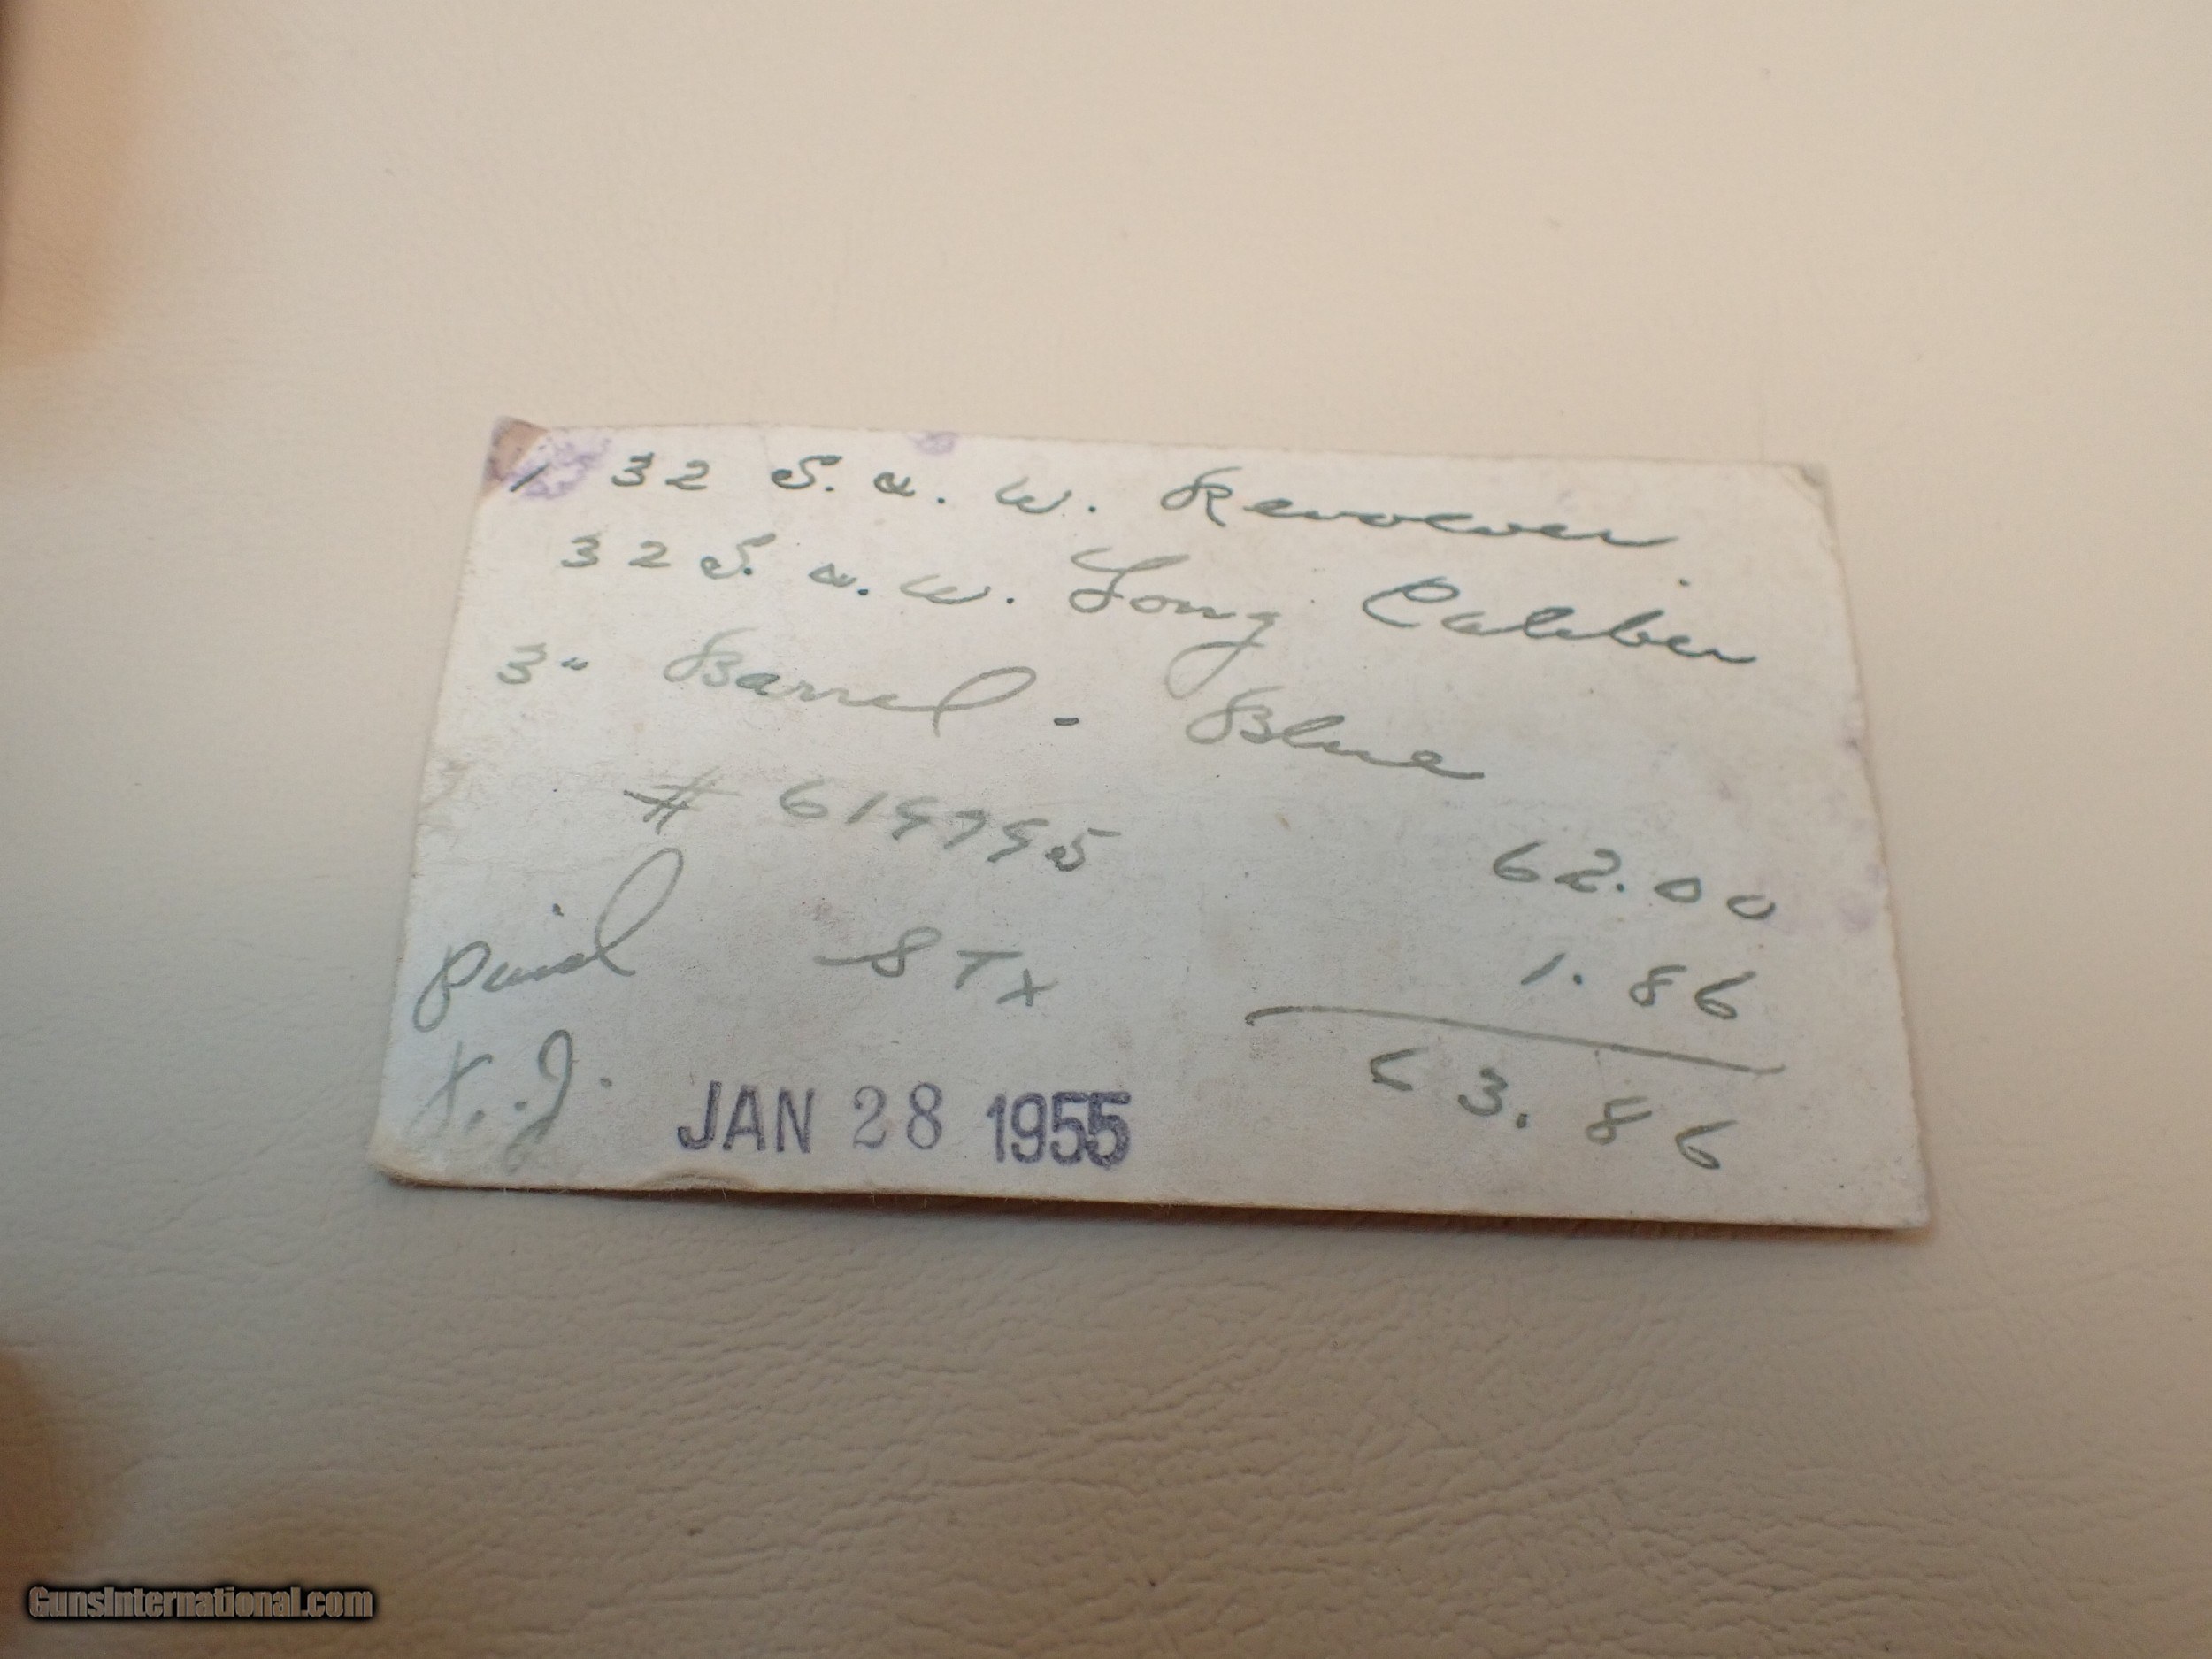 1 32 S. & W. Revolver.
32 S. & W. Long Caliber
3" Barrel - Blue
# 619795
62.00
Paid S Tx 1.86
63.86
JAN 28 1955
GunsInternational.com